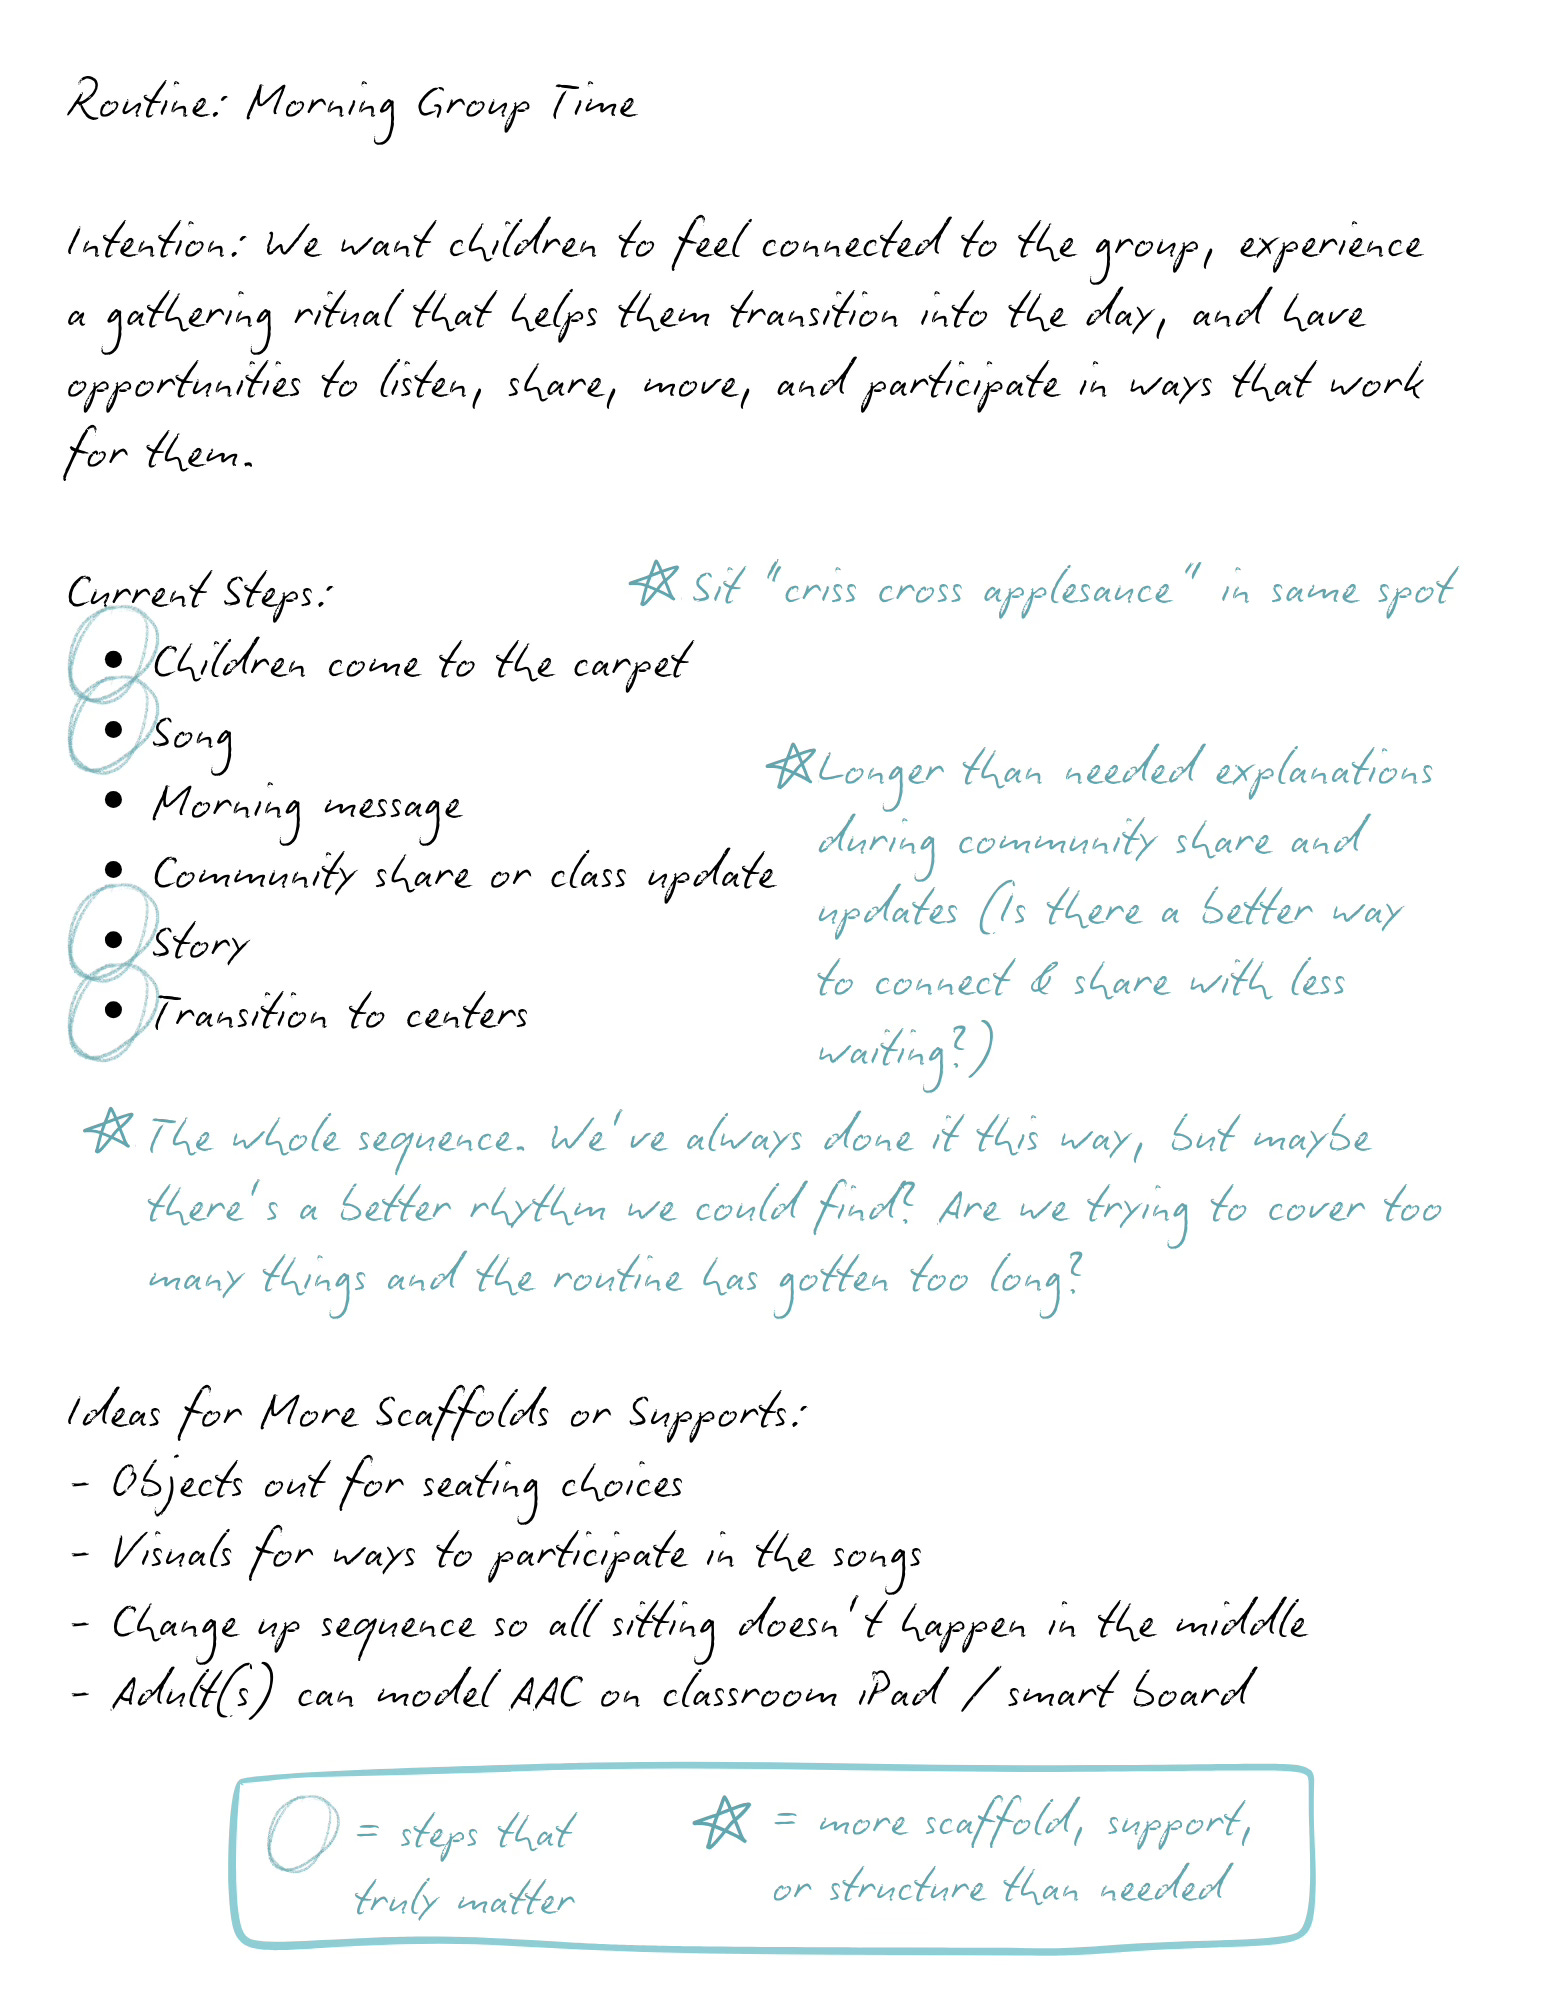 Routine: Morning Group Time
Intention: We want children to feel connected to the group, experience
a gathering ritual that helps them transition into the day, and have
opportunities to listen, share, move, and participate in ways that work
for them.
Current Steps:
☆ Sit "criss cross applesauce" in same spot
• Children come to the carpet
• Song
• Morning message
• Community share or class update
• Story
• Transition to centers
☆ Longer than needed explanations
during community share and
updates (Is there a better way
to connect & share with less
waiting?)
☆ The whole sequence. We've always done it this way, but maybe
there's a better rhythm we could find? Are we trying to cover too
many things and the routine has gotten too long?
Ideas for More Scaffolds or Supports:
- Objects out for seating choices
- Visuals for ways to participate in the songs
- Change up sequence so all sitting doesn't happen in the middle
- Adult(s) can model AAC on classroom iPad / smart board
○ = steps that
truly matter
☆ = more scaffold, support,
or structure than needed